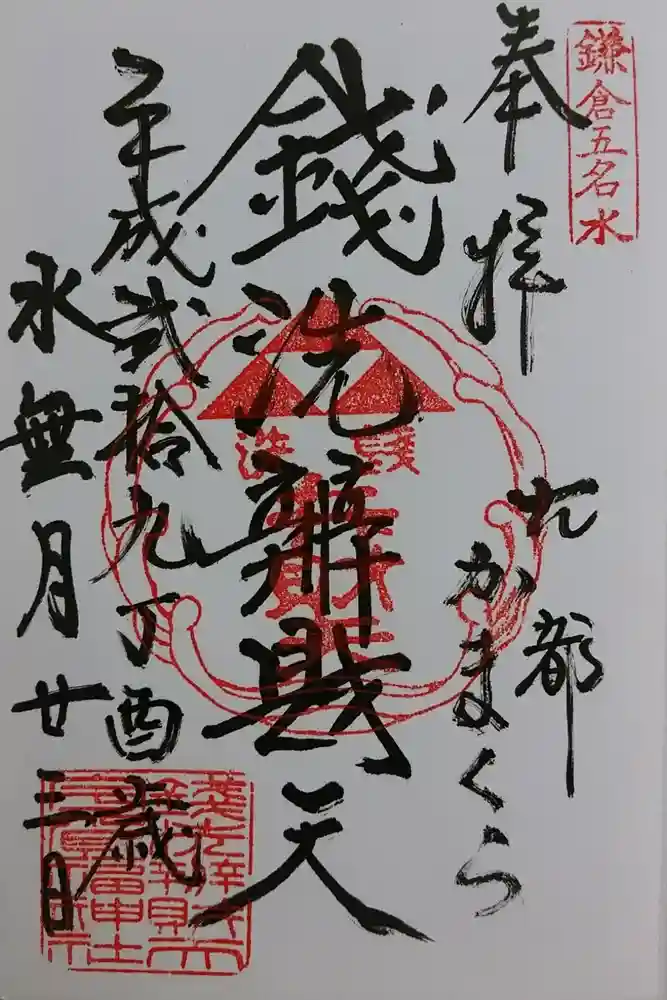 鎌倉五名水
奉拝
古都
かまくら
錢洗辨財天
錢洗
平成弐拾九丁酉歳
水無月廿三日